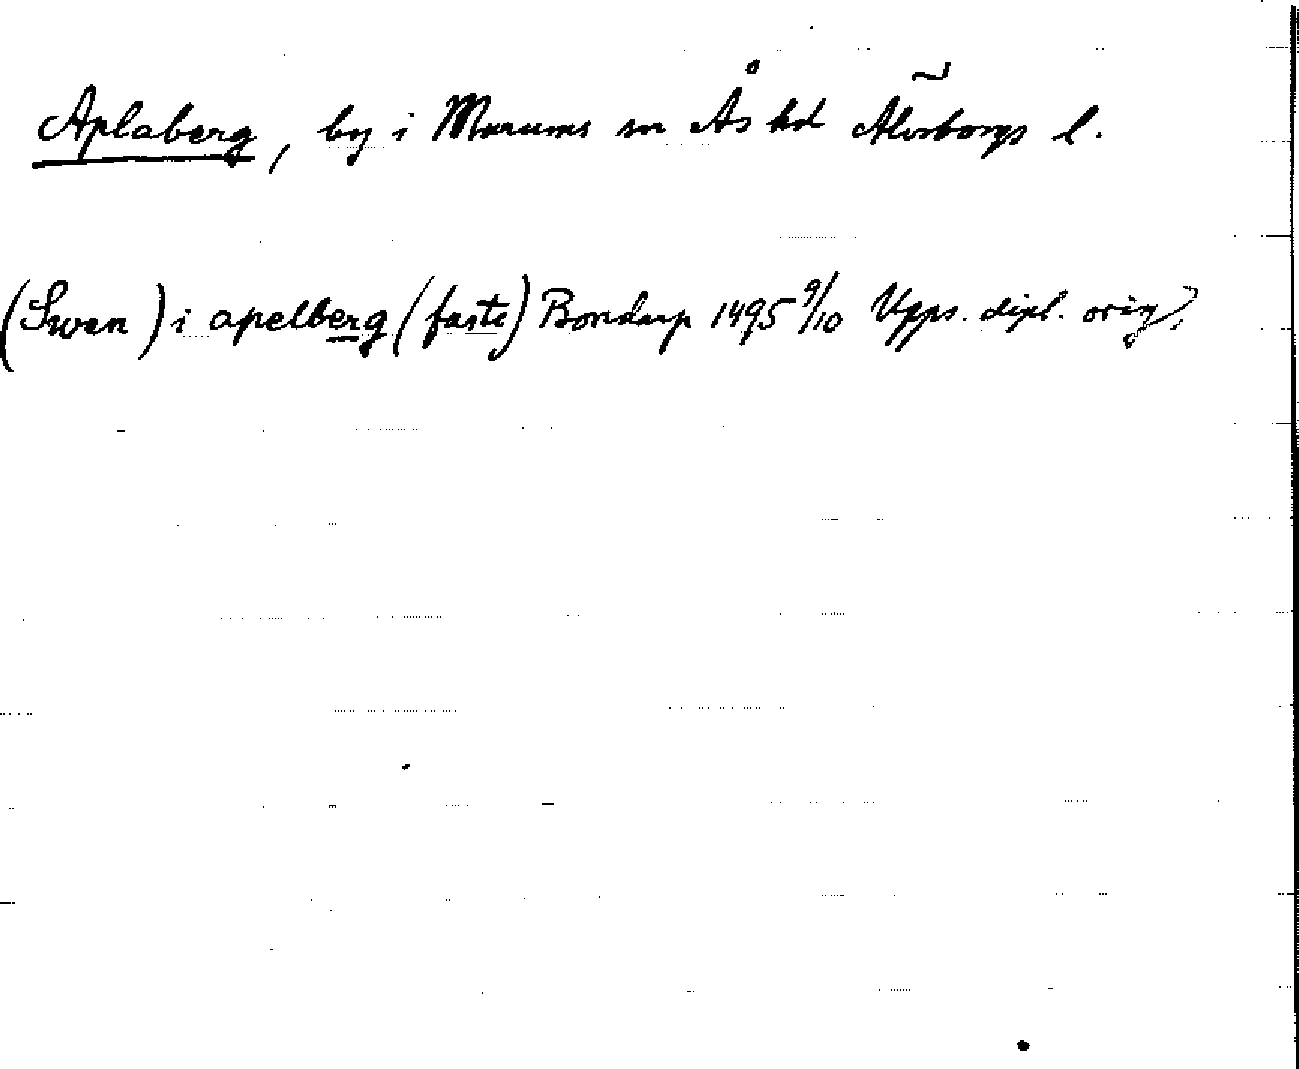 Aplaberg, by i Marums sn Ås hd Älvsborgs l.
(Swen) i apelberg (faste) Bondarp 1495 9/10 Upps. dipl. orig.